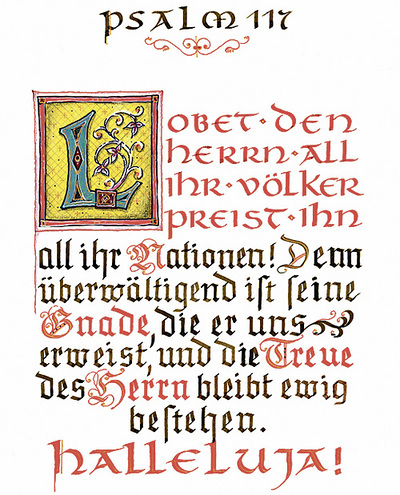 PSALM 117
LOBET · DEN
HERRN · ALL
IHR · VÖLKER
PREIST · IHN
all ihr Nationen! Denn
überwältigend ist seine
Gnade, die er uns
erweist, und die Treue
des Herrn bleibt ewig
bestehen.
HALLELUJA!